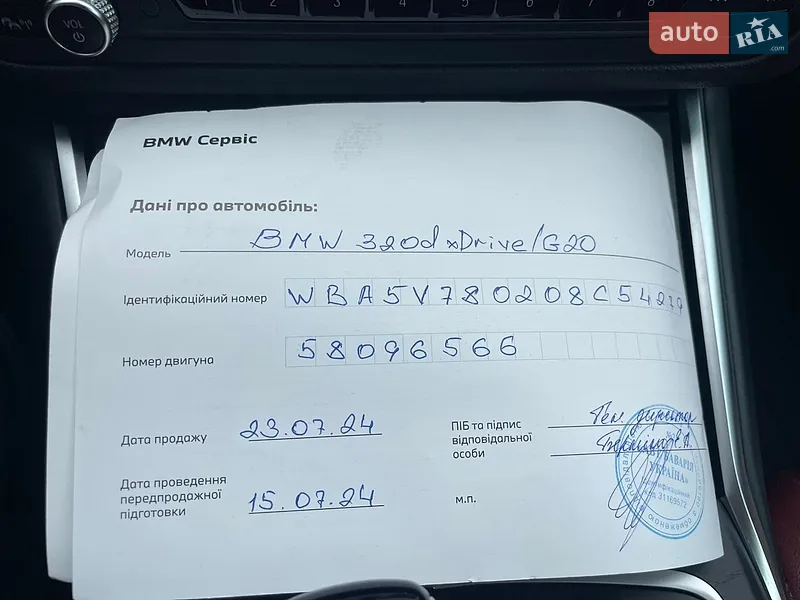 VOL
1 2 3 4 5 6 7 8
auto RIA .com
BMW Сервіс
Дані про автомобіль:
Модель BMW 320d xDrive/G20
Ідентифікаційний номер WBA5V780208C54279
Номер двигуна 58096566
Дата продажу 23.07.24
ПІБ та підпис відповідальної особи Ген директор
Дата проведення передпродажної підготовки 15.07.24
м.п.
БАВАРІЯ
УКРАЇНА»
Ідентифікаційний
код 31169572